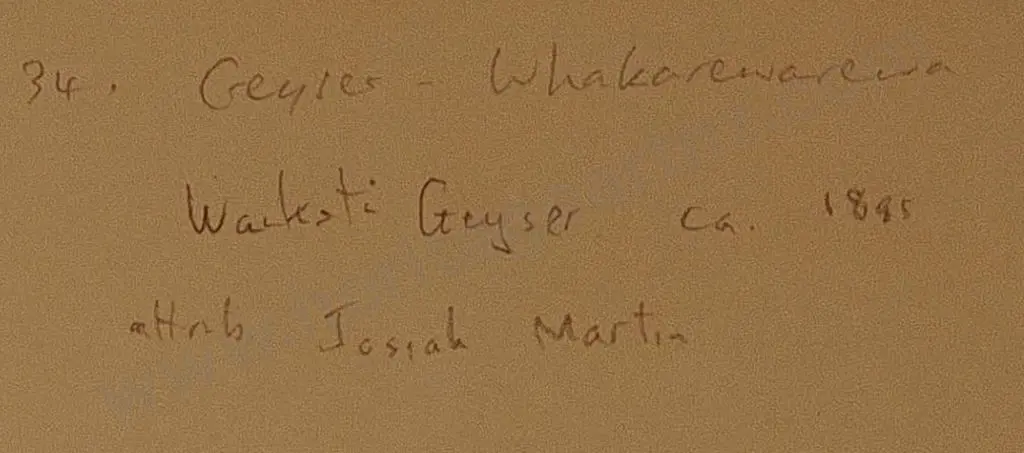 34. Geyser - Whakarewarewa
Waikoti Geyser ca. 1895
attrib Josiah Martin